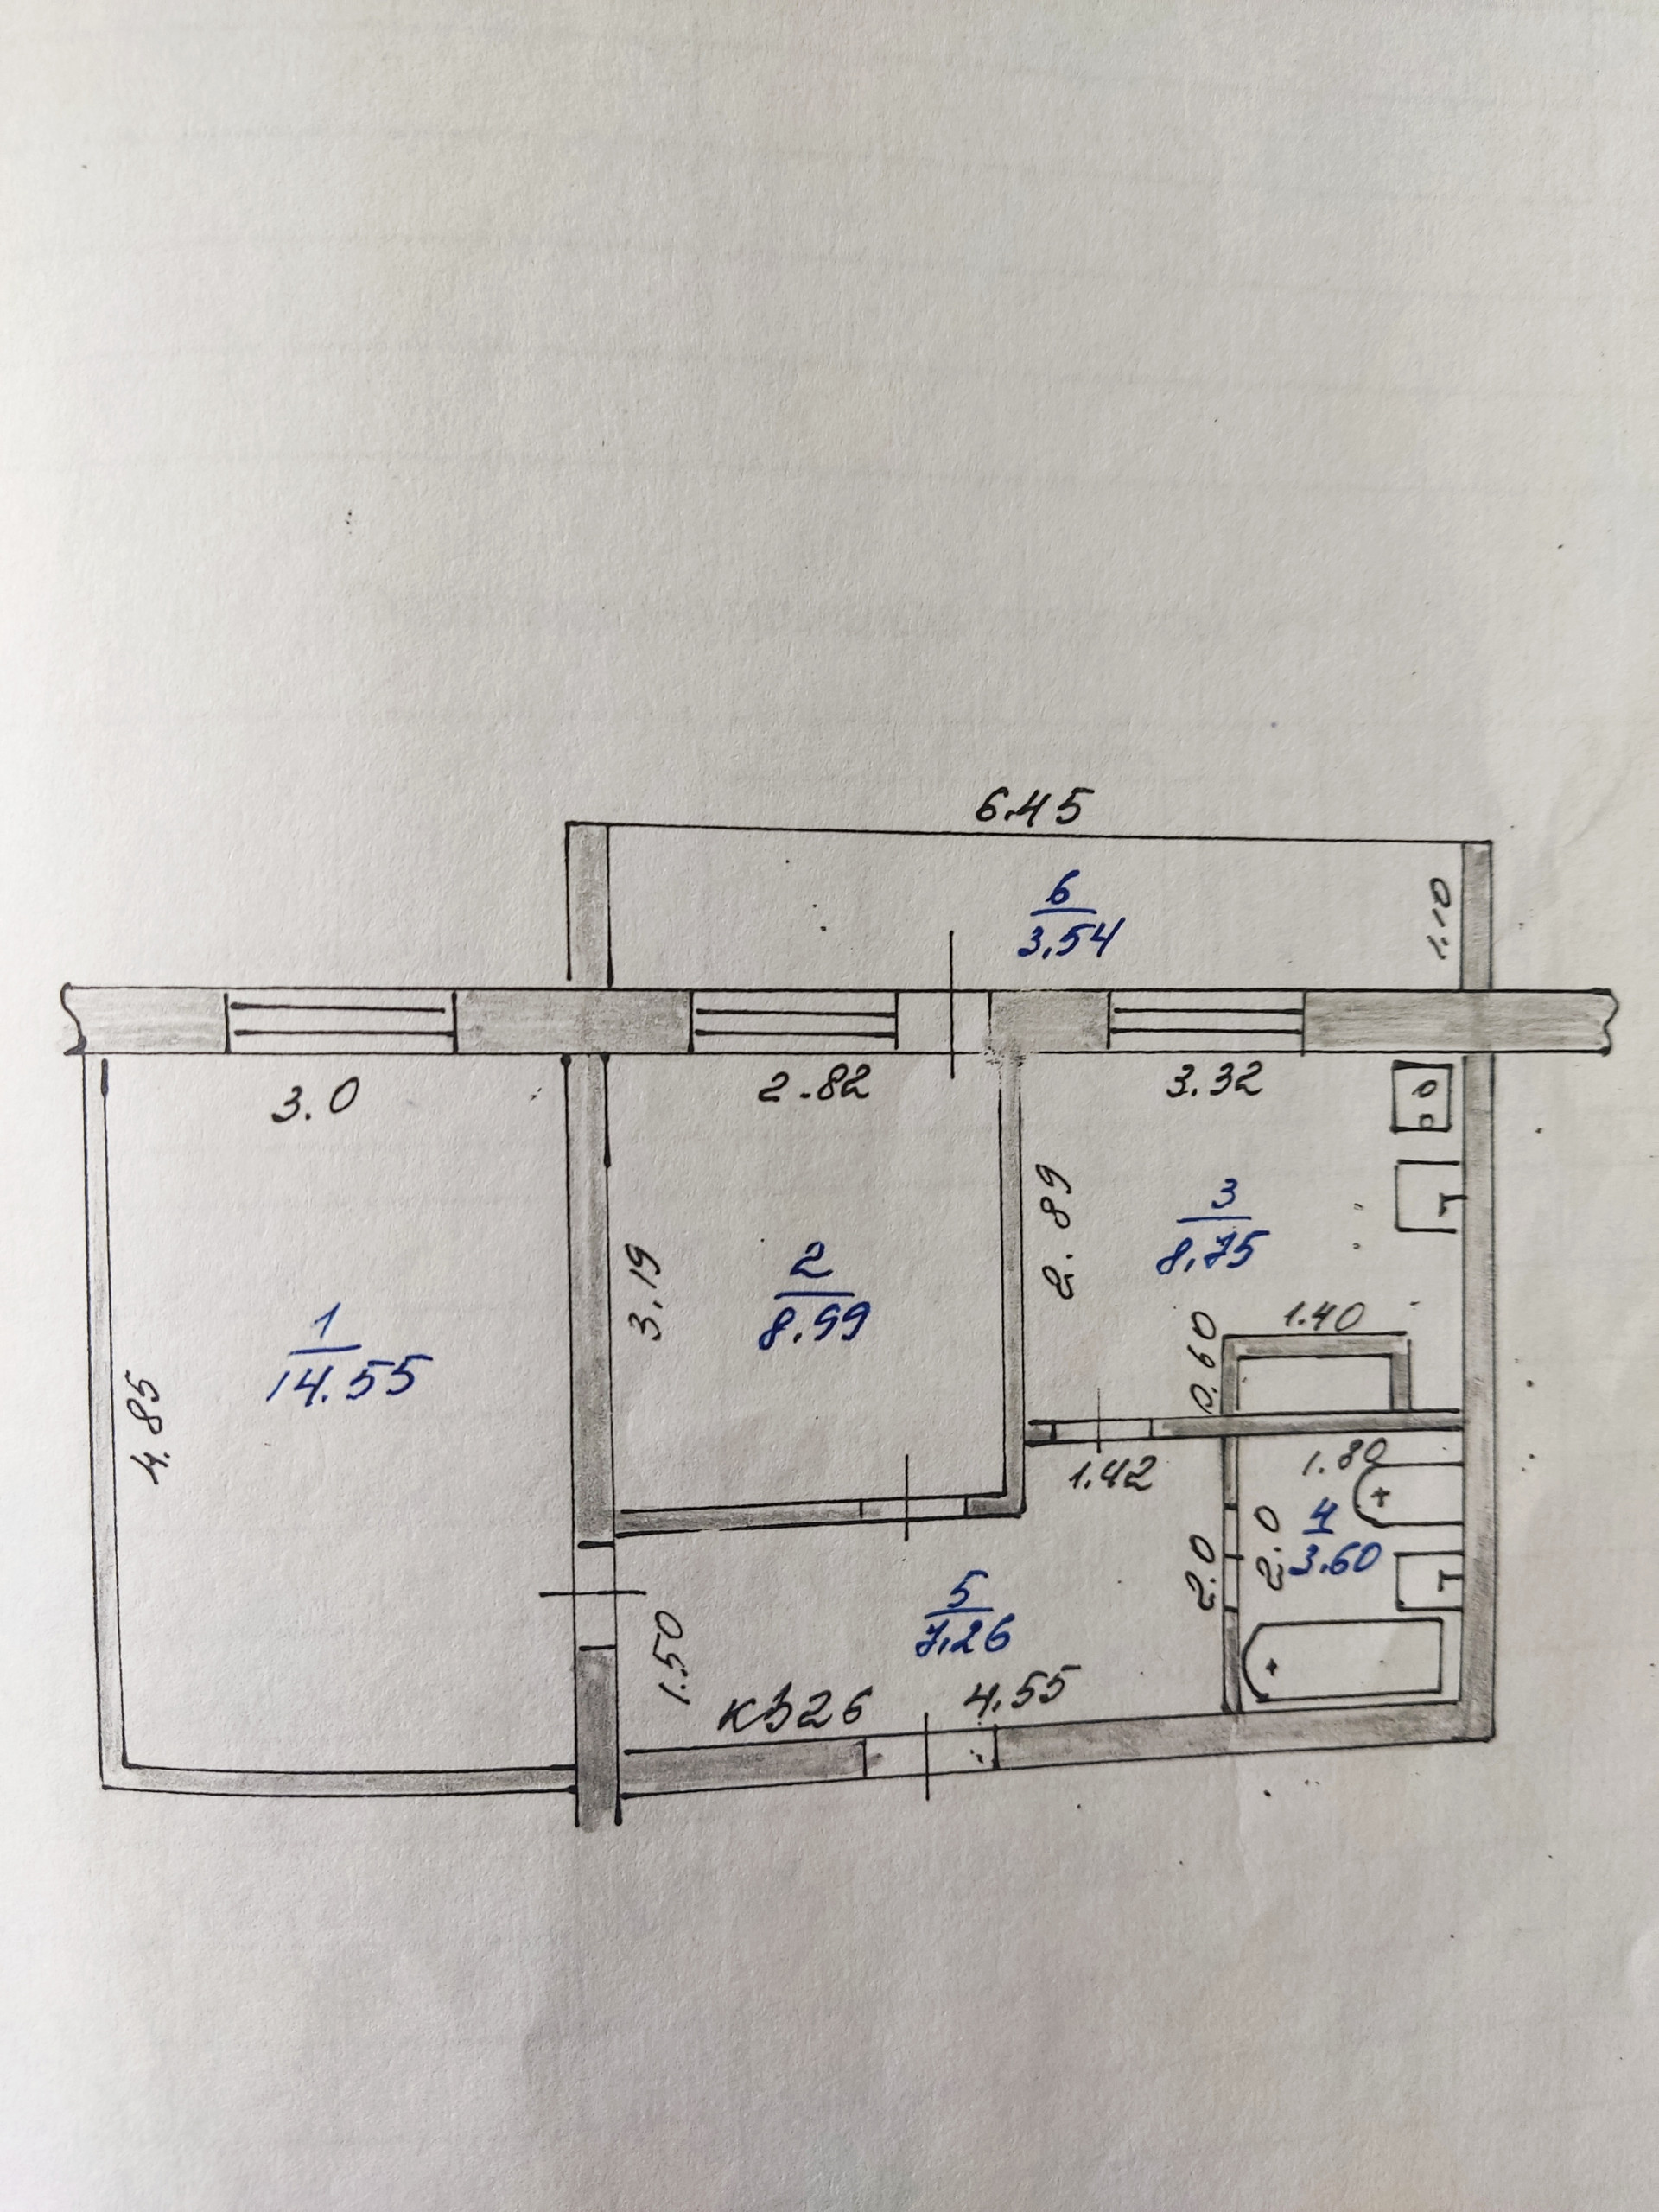 6.45
6
3.54
1.10
3.0
2.82
3.32
2.89
3
8.75
3.19
2
8.99
1
14.55
4.85
0.60
1.40
1.42
1.80
2.0
2.0
4
3.60
5
7.26
1.50
кв26
4.55